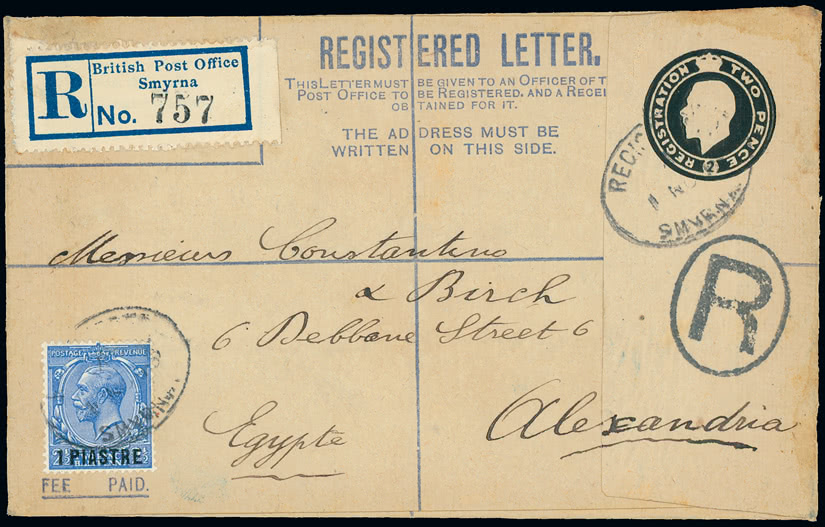 R
British Post Office
Smyrna
No. 757
REGISTERED LETTER.
THIS LETTER MUST BE GIVEN TO AN OFFICER OF T
POST OFFICE TO BE REGISTERED. AND A RECEI
OBTAINED FOR IT.
THE ADDRESS MUST BE
WRITTEN ON THIS SIDE.
REGISTRATION TWO PENCE
(2)
SMYRN
R
Messieurs Constantino
& Birch
6 Debbane Street 6
Alexandria
Egypte
POSTAGE REVENUE
1 PIASTRE
SMYRN
FEE PAID.